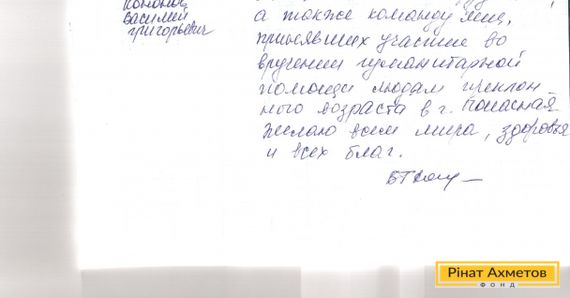 Василий
Григорьевич
а также команду лиц,
принявших участие во
вручении гуманитарной
помощи людям преклон-
ного возраста в г. Попасная
желаю всем мира, здоровья
и всех благ.
Рінат Ахметов
ФОНД